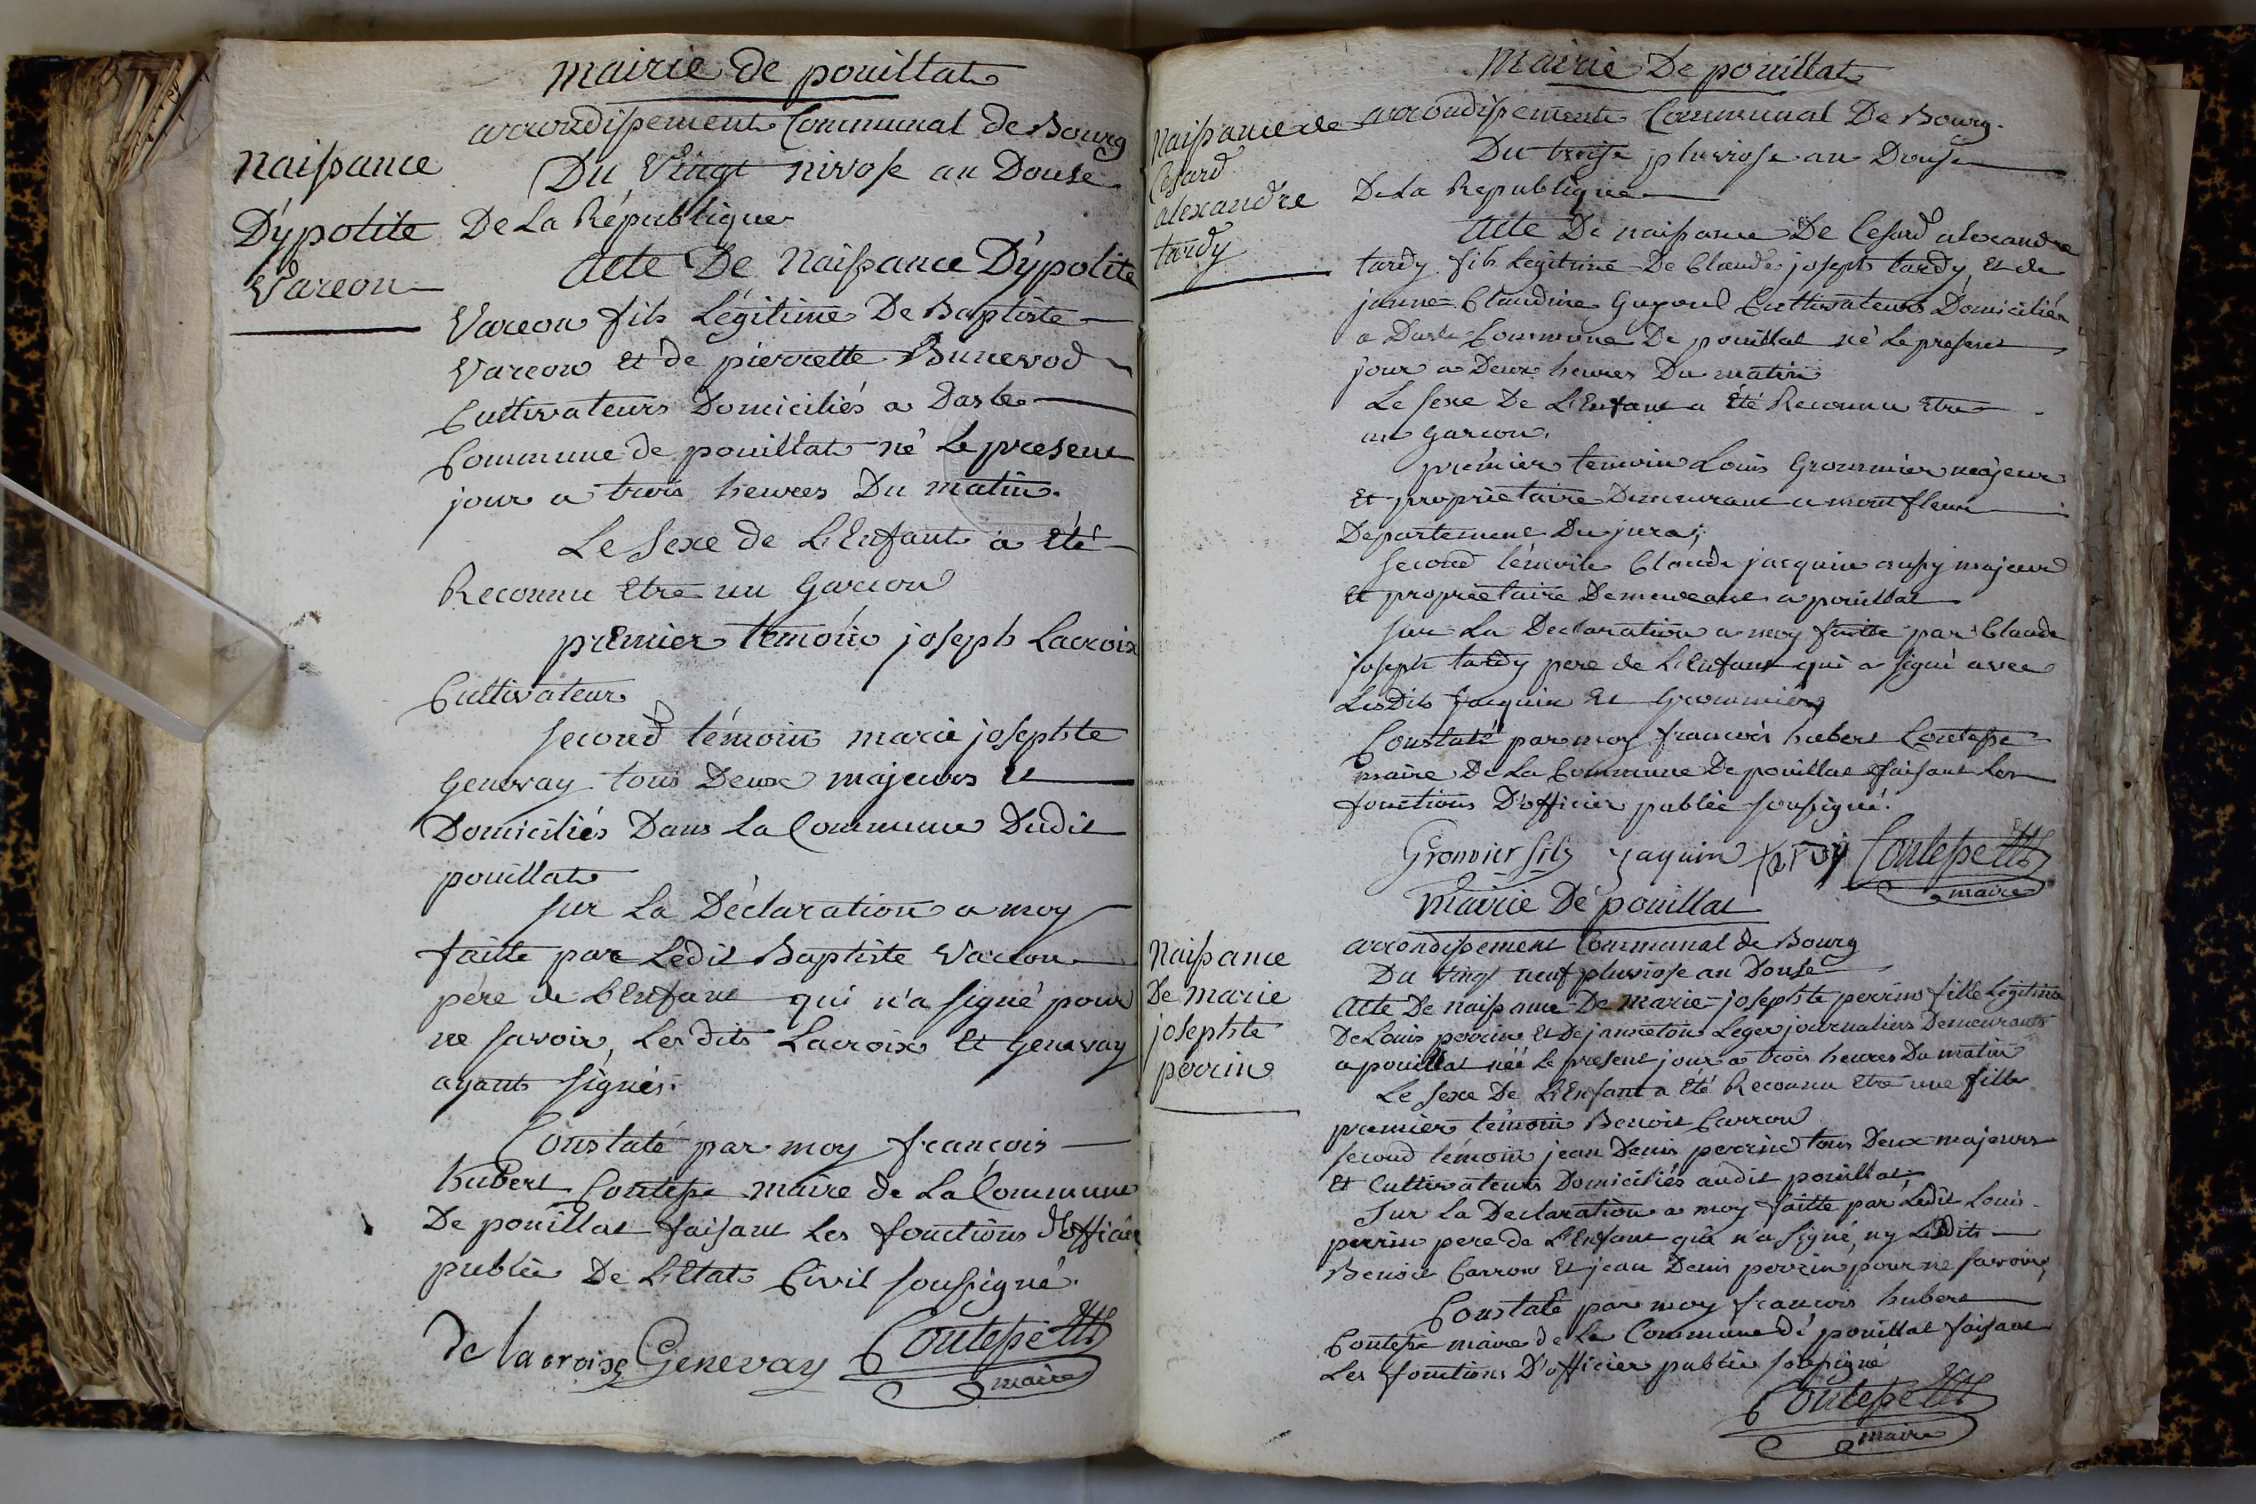 mairie de pouillat
arrondissement Communal de Bourg
naissance
D'ypolite
Vareon
Du Vingt nivose an Douse
De La République
Acte De Naissance D'ypolite
Vareon fils Légitime De Baptiste
Vareon et de pierrette Bunevod
Cultivateurs Domiciliés a Daste
Commune de pouillat né Le present
jour a trois heures Du matin.
Le sexe de L'Enfant a été
Reconnu Etre un Garcon
premier témoin joseph Lacroix
Cultivateur
second témoin marie josephte
Genevay tous Deux majeurs et
Domiciliés Dans La Commune Dudit
pouillat
sur La Déclaration a moy
faitte par Ledit Baptiste Vareon
pére de L'Enfant qui n'a signé pour
ne savoir, Les dits Lacroix Et Genevay
ayant signés.
Constaté par moy francois
hubert Contesse maire de La Commune
De pouillat faisant Les fonctions d'officier
public De L'Etat Civil soussigné.
de lacroix Genevay Contesse
maire
Mairie De pouillat
arrondissement Communal De Bourg.
Naissance de
Cesard
alexandre
tardy
Du treise pluviose an Douse
De La Republique
Acte De naissance De Cesard alexandre
tardy fils Legitime De Claude joseph tardy et de
janne Claudine Cultivateurs Domiciliés
a Daste Commune De pouillat né Le present
jour a Deux heures Du matin
Le sexe De L'Enfant a Eté Reconnu Etre
un Garcon.
prémier temoin Louis Grommier majeur
Et proprietaire Demeurant a montfleur
Departement Du jura;
second témoin Claude jacquin aussy majeur
et propriétaire Demeurant a pouillat
sur La Declaration a moy faitte par Claude
joseph tardy pere de L'Enfant qui a signé avec
Lesdits jacquin Et Grommier
Constaté par moy francois hubert Contesse
maire De La Commune De pouillat faisant Les
fonctions D'officier public soussigné.
Gromier fils jaquin tardy Contesse
maire
Mairie De pouillat
arrondissement Communal de Bourg
Naissance
De marie
josephte
perrin
Du vingt neuf pluviose an Douse
Acte De naissance De marie-josephte perrin fille Légitime
De Louis perrin Et De janneton Leger journaliers Demeurants
a pouillat née Le present jour a trois heures Du matin
Le sexe De L'Enfant a Eté Reconnu Etre une fille
premier témoin Benoit Carron
second témoin jean Denis perrin tous Deux majeurs
Et Cultivateurs Domiciliés audit pouillat
Sur La Declaration a moy faitte par Ledit Louis
perrin pere de L'Enfant qui n'a signé, ny Lesdits
Benoit Carron Et jean Denis perrin pour ne savoir,
Constaté par moy francois hubert
Contesse maire de La Commune de pouillat faisant
Les fonctions D'officier public soussigné
Contesse
maire